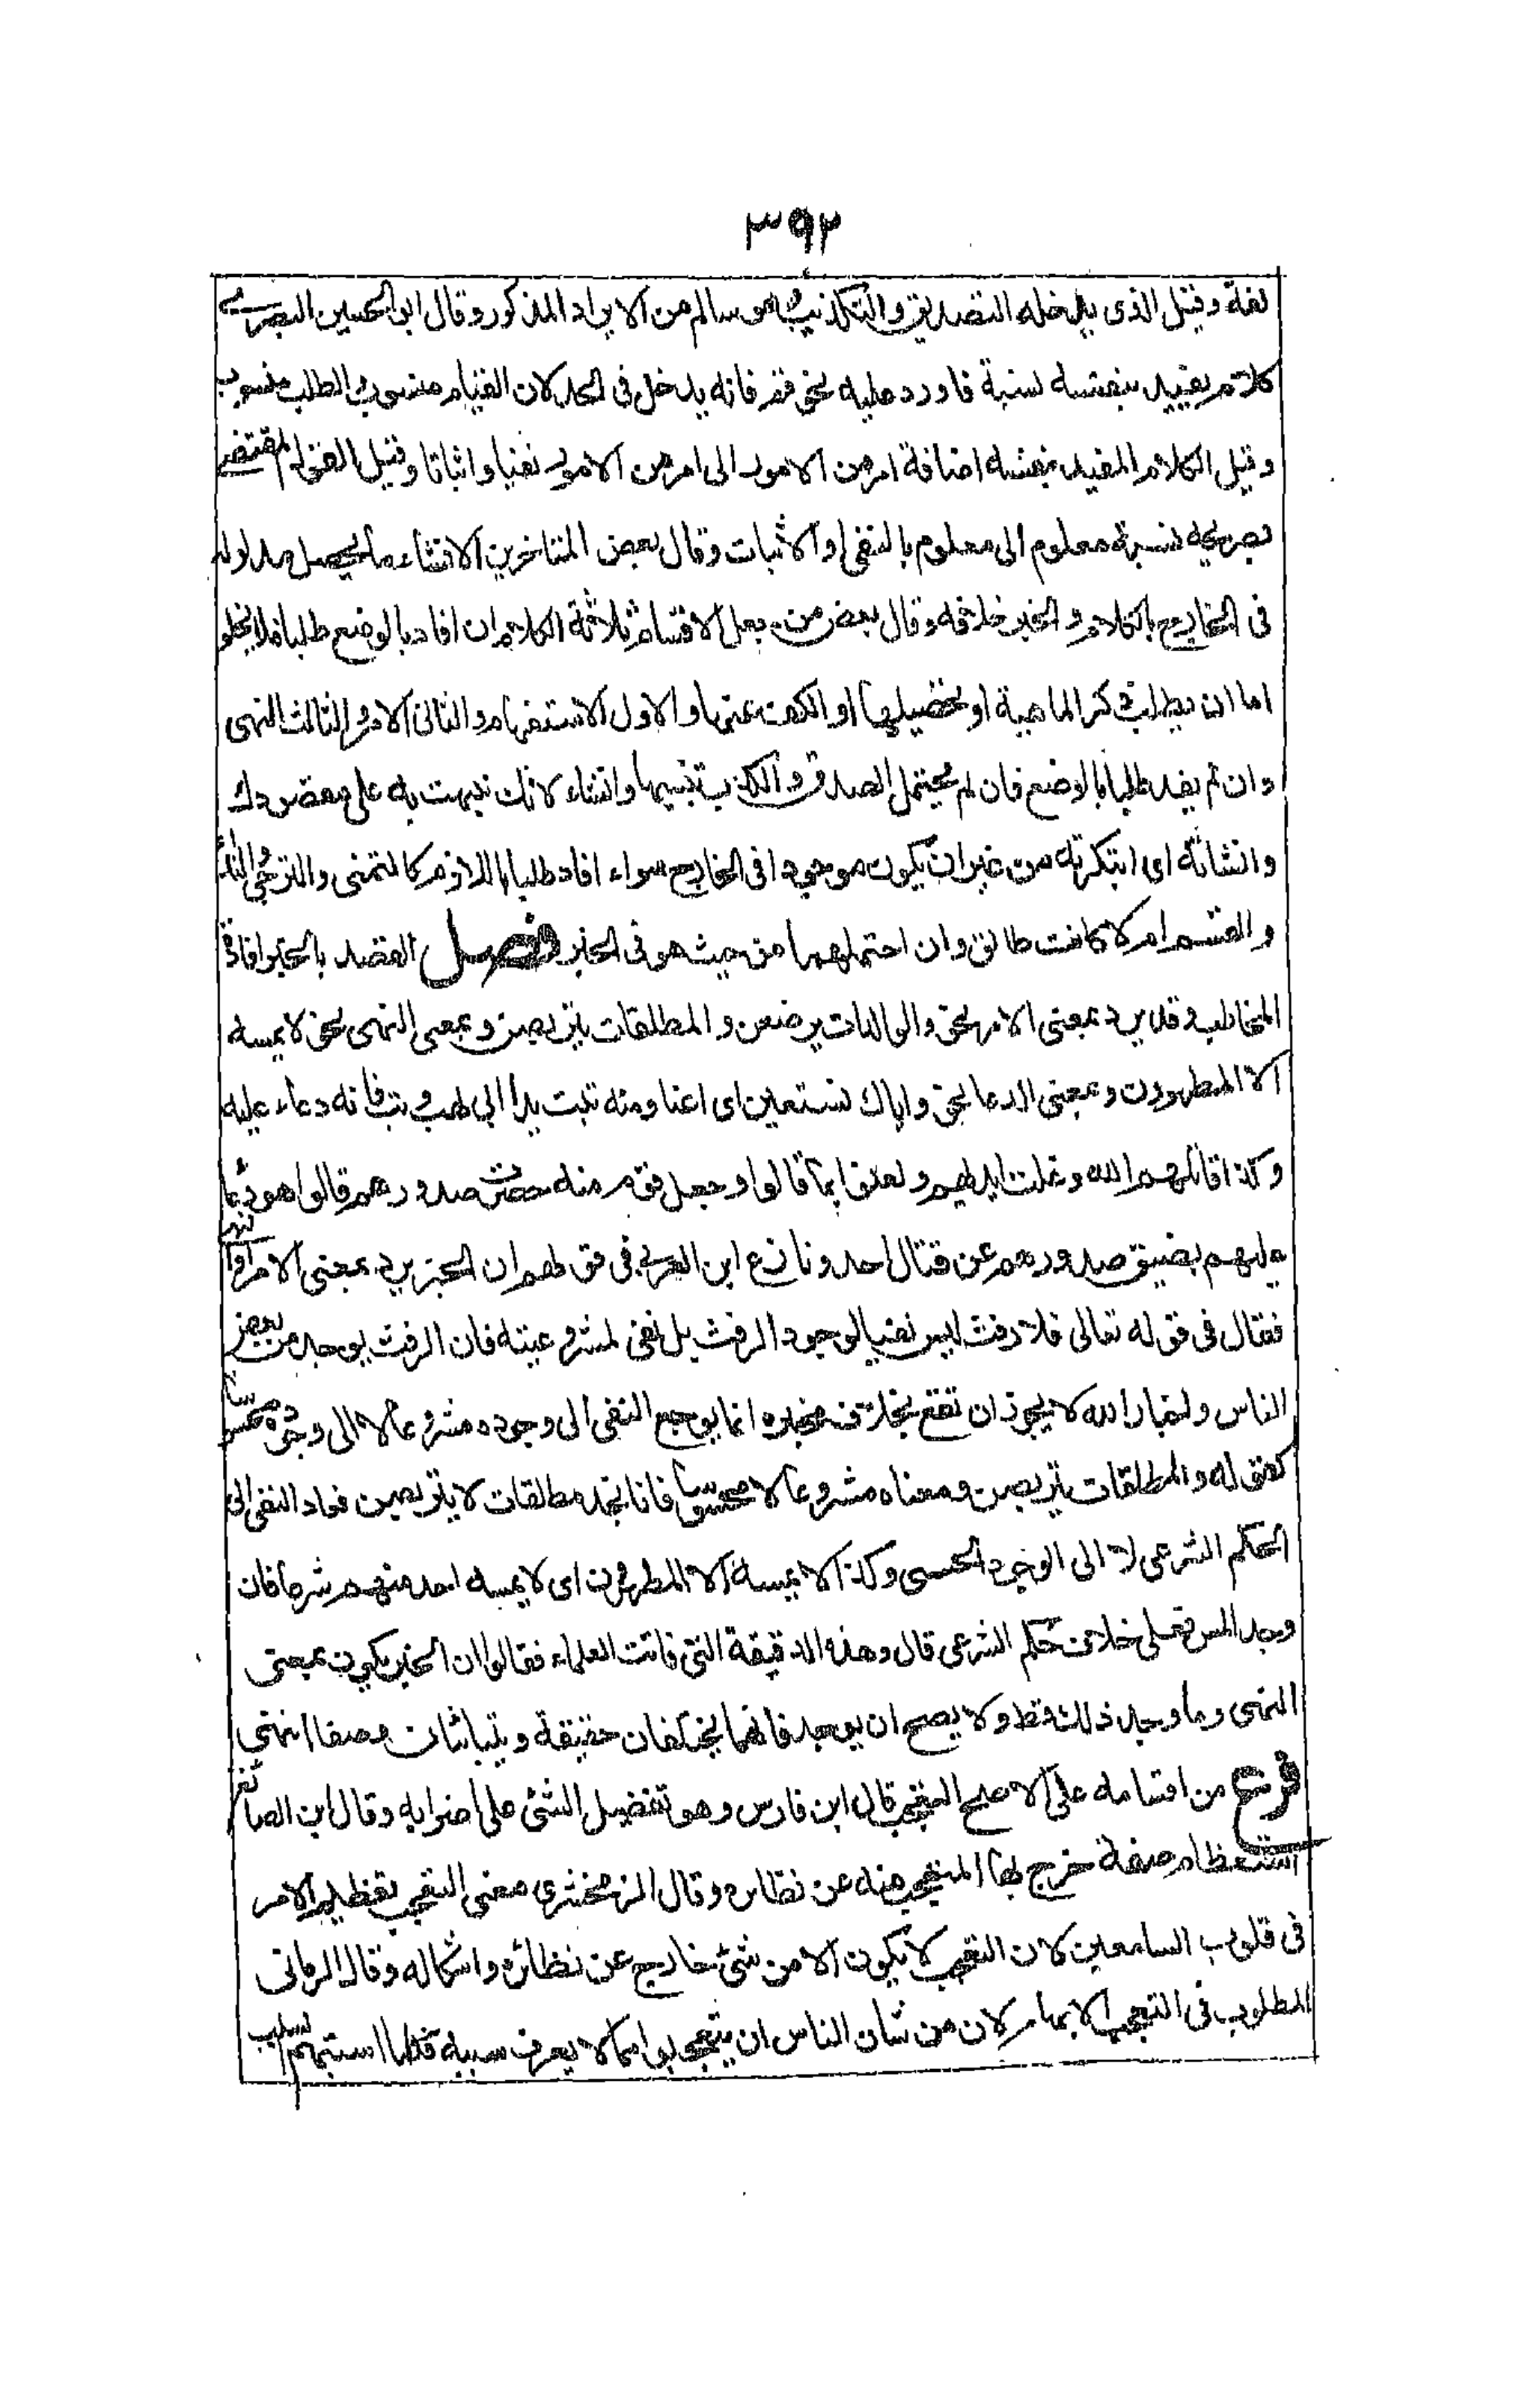 ٣٩٢
لغة وقيل الذى يدخله التصديق والتكذيب وهو سالم من الايراد المذكور وقال ابو الحسين البصرى
كلام يفيد بنفسه نسبة فاورد عليه نحو قم فانه يدخل فى الحد لان القيام منسوب والطلب منسوب
وقيل الكلام المفيد بنفسه اضافة امر من الامور الى امر من الامور نفيا واثباتا وقيل القول المقتضى
بصريحه نسبة معلوم الى معلوم بالنفى او الاثبات وقال بعض المتاخرين الانشاء ما يحصل مدلوله
فى الخارج بالكلام والخبر خلافه وقال بعض من جعل الاقسام ثلاثة الكلام ان افاد بالوضع طلبا فلا يخلو
اما ان يطلب ذكر الماهية او تحصيلها او الكف عنها والاول الاستفهام والثانى الامر والثالث النهى
وان لم يفد طلبا بالوضع فان لم يحتمل الصدق والكذب تنبيها وانشاء لانك نبهت به على مقصودك
وانشاته اى ابتكرته من غير ان يكون موجودا فى الخارج سواء افاد طلبا باللازم كالتمنى والترجى والنداء
والقسم ام لا كانت طالق وان احتملهما من حيث هو فى الخبر فصل القصد بالخبر افادة
المخاطب وقد يرد بمعنى الامر نحو والوالدات يرضعن والمطلقات يتربصن وبمعنى النهى نحو لا يمسه
الا المطهرون وبمعنى الدعا نحو واياك نستعين اى اعنا ومنه تبت يدا ابى لهب وتب فانه دعاء عليه
وكذا قاتلهم الله وغلت ايديهم ولعنوا بما قالوا وجعل قوم منه حصرت صدورهم قالوا هو دعا
عليهم بضيق صدورهم عن قتال احد ونازع ابن العربى فى قولهم ان الخبر يرد بمعنى الامر او النهى
فقال فى قوله تعالى فلا رفث ليس نفيا لوجود الرفث بل نفى لمشروعيته فان الرفث يوجد من بعض
الناس واخبار الله لا يجوز ان تقع بخلاف مخبره انما يرجع النفى الى وجوده مشروعا لا الى وجوده محسوسا
كقوله والمطلقات يتربصن ومعناه مشروعا لا محسوسا فانا نجد مطلقات لا يتربصن فعاد النفى الى
الحكم الشرعى لا الى الوجود الحسى وكذا لا يمسه الا المطهرون اى لا يمسه احد منهم شرعا فان
وجد المس فعلى خلاف حكم الشرعى قال وهذه الدقيقة التى فاتت العلماء فقالوا ان الخبر يكون بمعنى
النهى وما وجد ذلك قط ولا يصح ان يوجد فانهما يختلفان حقيقة ويتباينان وصفا انتهى
فرع من اقسامه على الاصح التعجب قال ابن فارس وهو تفضيل الشئ على اضرابه وقال ابن الصائغ
استعظام صفة خرج بها المتعجب منه عن نظائره وقال الزمخشرى معنى التعجب تعظيم الامر
فى قلوب السامعين لان التعجب لا يكون الا من شئ خارج عن نظائره واشكاله وقال الرمانى
المطلوب فى التعجب الابهام لان من شان الناس ان يتعجبوا مما لا يعرف سببه فكلما استبهم السبب